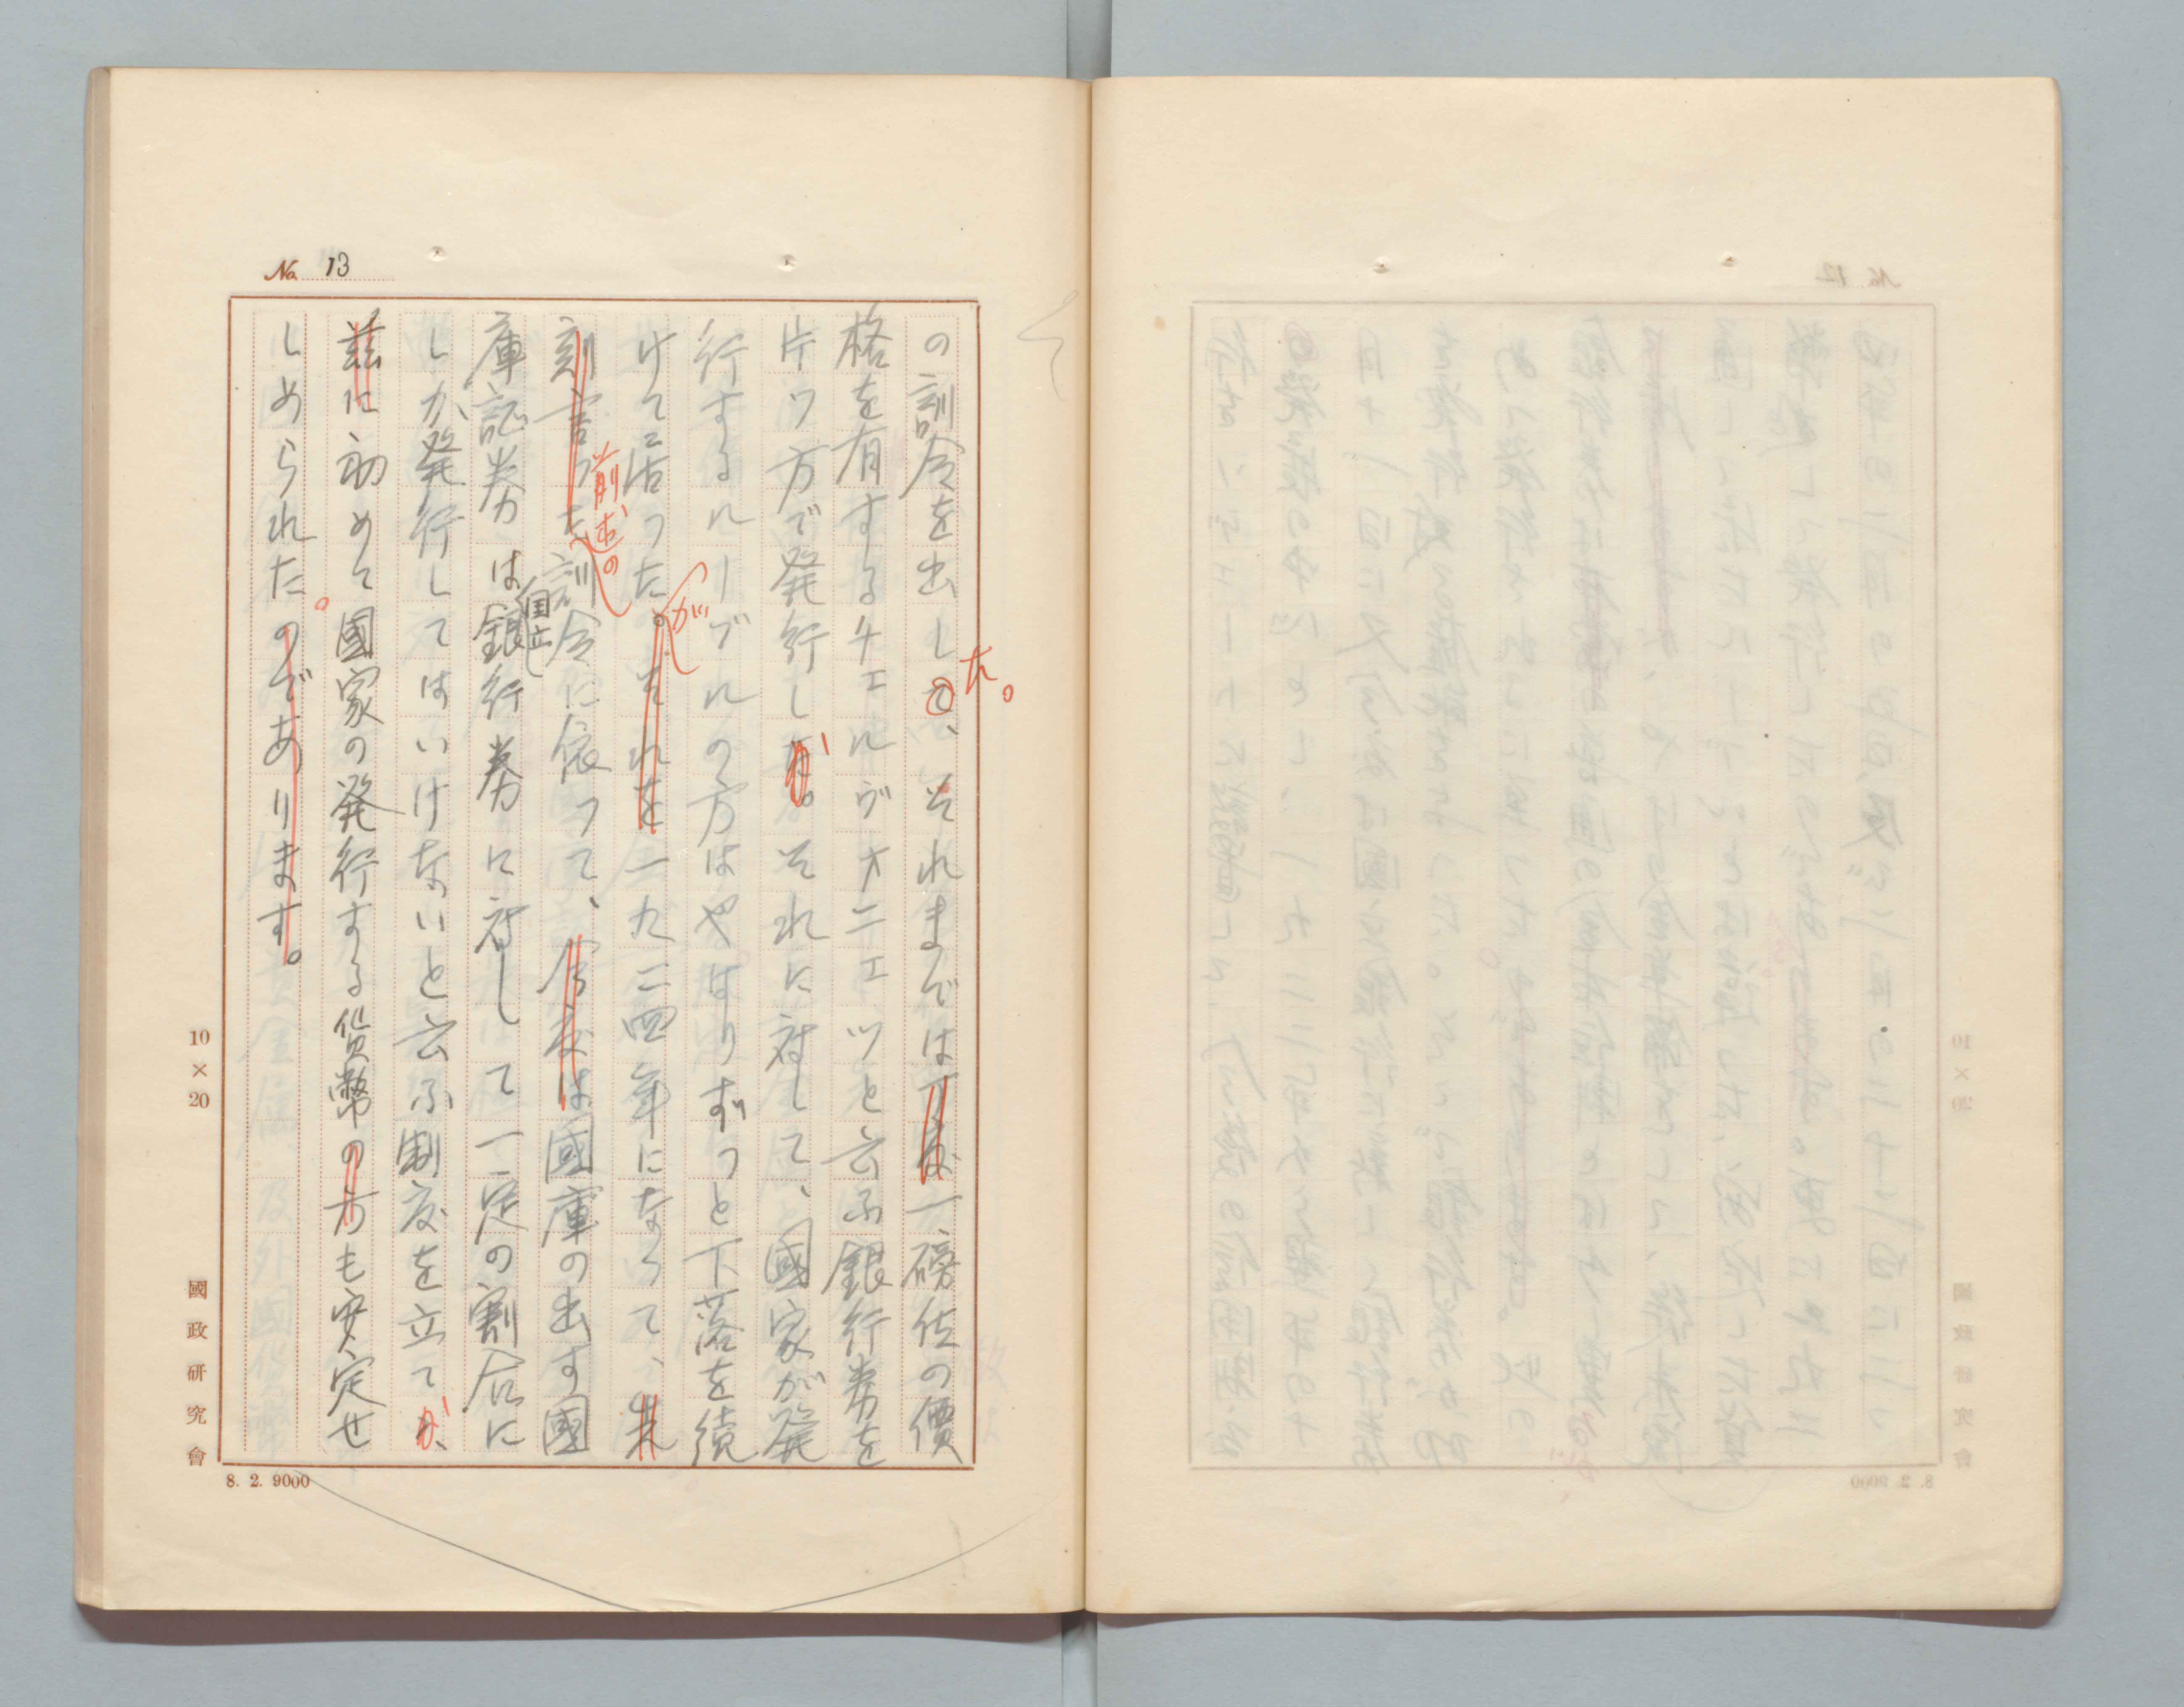 No. 13
の訓令を出して、それまでは丁度一磅位の價
た。
格を有するチエルヴオニエツと云ふ銀行券を
片ツ方で発行した。それに対して、國家が発
が
行するルーブルの方はやはりずつと下落を続
けて居つた。それを一九二四年になつて、先
が
刻言つた訓令に依つて、今度は國庫の出す國
前述の
庫証券は銀行券に対して一定の割合に
国立
しか発行してはいけないと云ふ制度を立て
が、
茲に初めて國家の発行する貨幣の方も安定せ
しめられたのであります。
。
10×20
國政研究會
8. 2. 9000